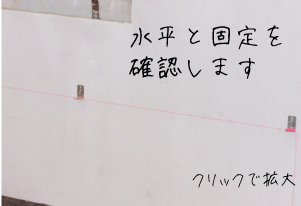 水平と固定を
確認します
クリックで拡大